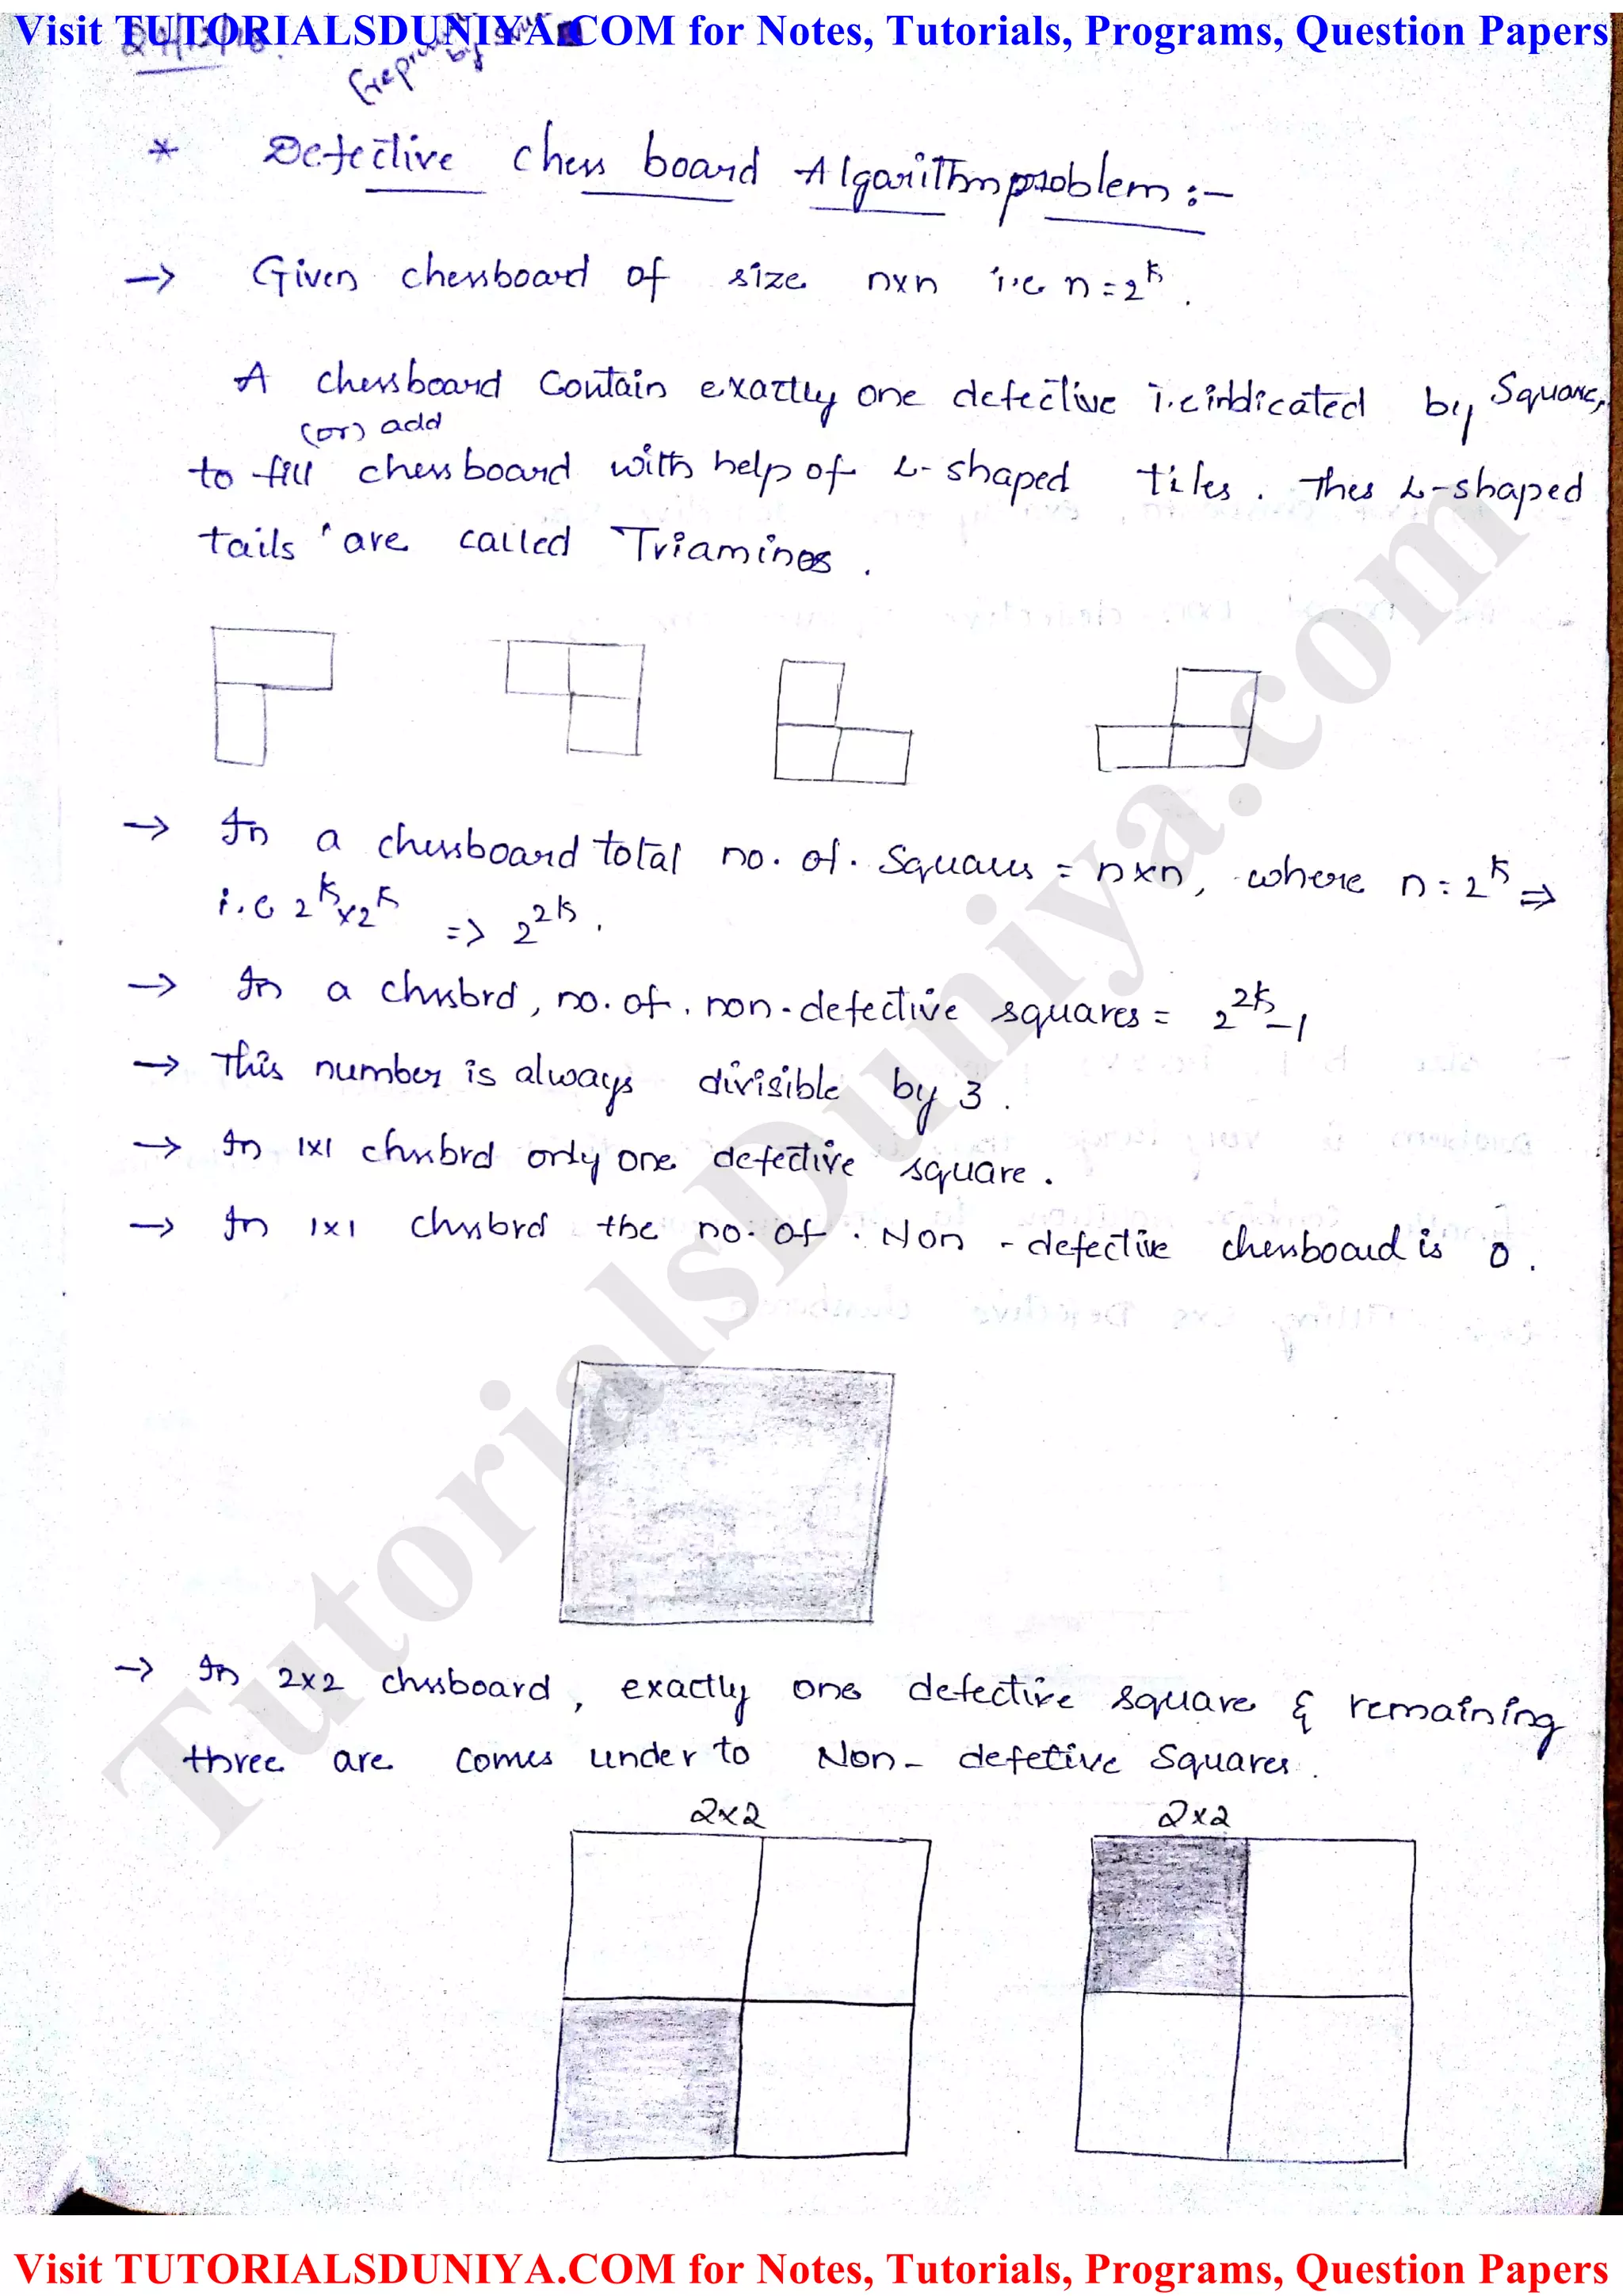 Visit TUTORIALSDUNIYA.COM for Notes, Tutorials, Programs, Question Papers
* Defective Chess board Algarithm problem :-
→ Given chessboard of size nxn i.e n = 2^k .
A chessboard Contain exactly one defective i.e indicated by Square,
(or) add
to fill chess board with help of L-shaped tiles . Thes L-shaped
tails ' are called Triamines .
→ In a chessboard total no. of. Squares = n×n, where n = 2^k ⇒
i.e 2^k x 2^k => 2^2k .
→ In a chsbrd, no. of. non-defective squares = 2^2k - 1
→ This number is always divisible by 3 .
→ In 1x1 chsbrd only one defective square .
→ In 1x1 chsbrd the no. of . Non - defective chessboard is 0 .
→ In 2x2 chssboard, exactly one defective square & remaining
three are comes under to Non- defetive Squares .
2x2 2x2
TutorialsDuniya.com
Visit TUTORIALSDUNIYA.COM for Notes, Tutorials, Programs, Question Papers